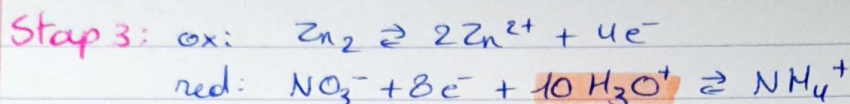 Stap 3: ox: Zn₂ ⇄ 2Zn²⁺ + 4e⁻
red: NO₃⁻ + 8e⁻ + 10 H₃O⁺ ⇄ NH₄⁺